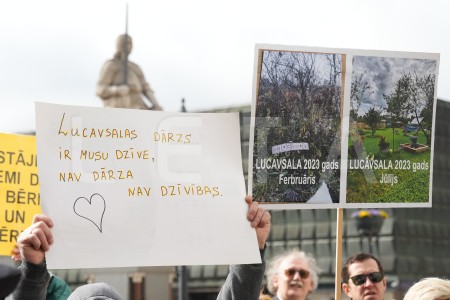 STĀJ
EMI D
BĒRI
UN
ĒR
LUCAVSALAS DĀRZS
IR MUSU DZĪVE,
NAV DĀRZA
NAV DZĪVĪBAS.
LUCAVSALA 2023 gads
Ferbruāris
LUCAVSALA 2023 gads
Jūlijs
LETA